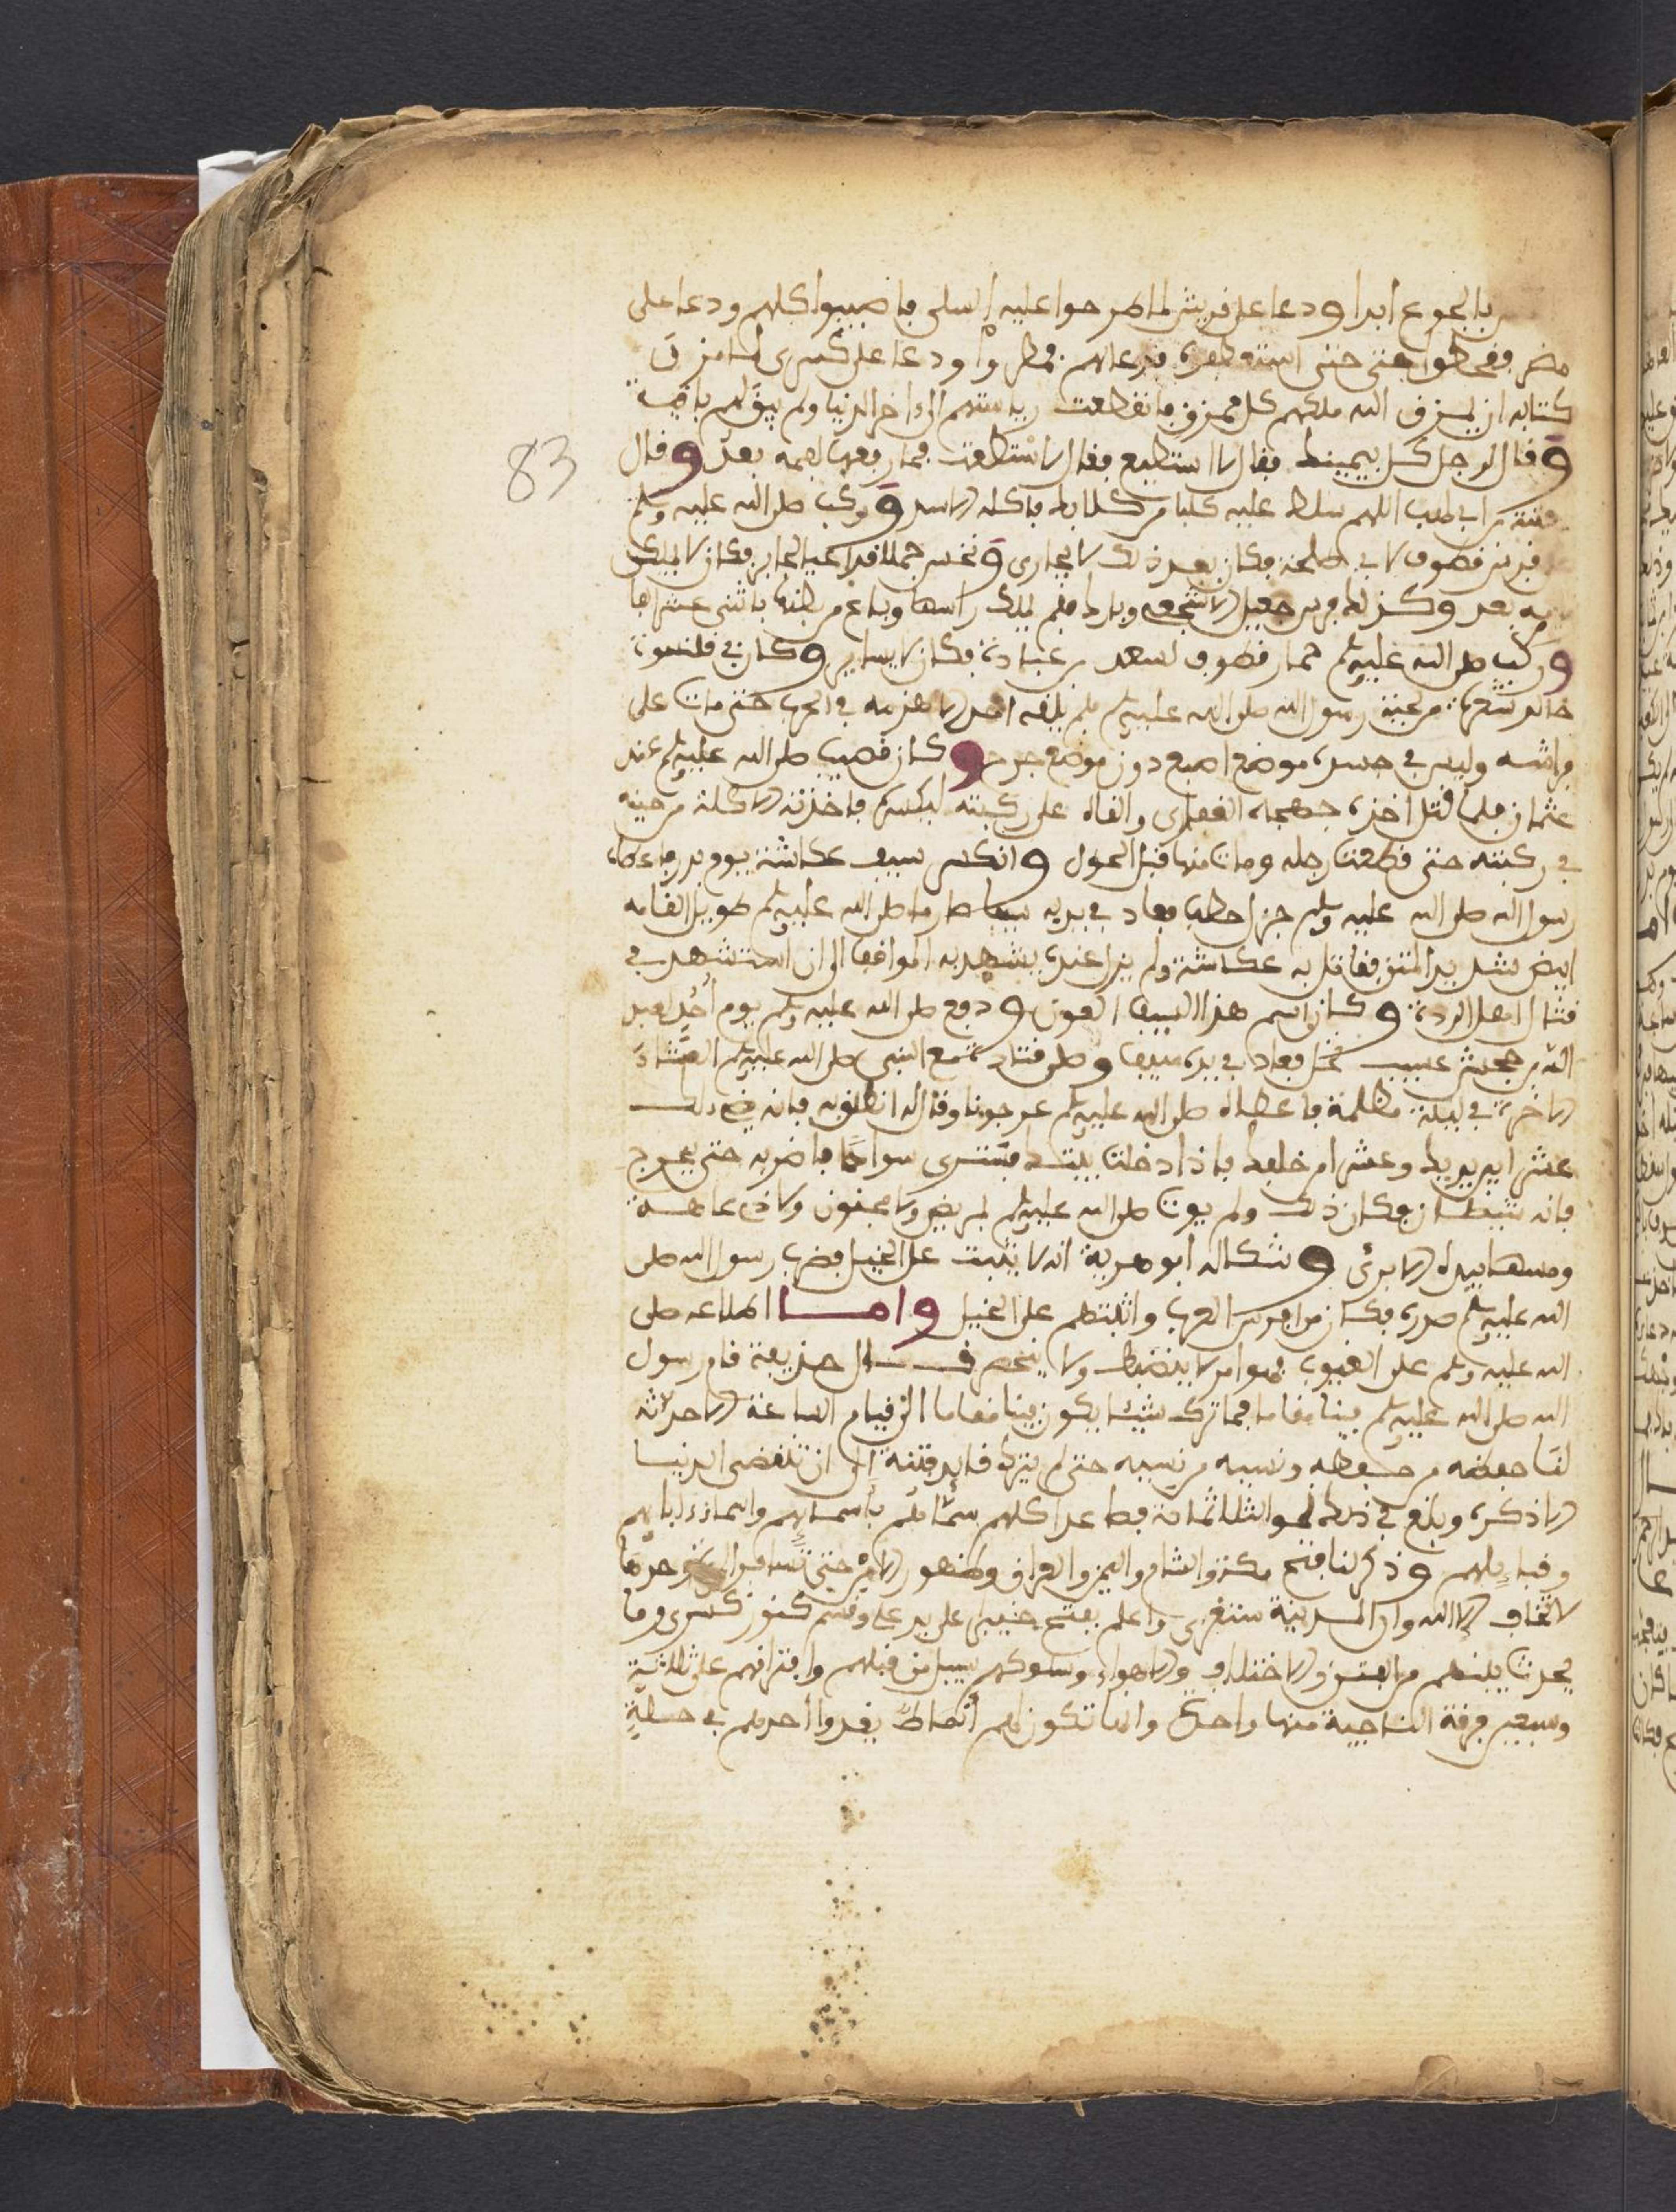 بالجوع ابدا ودعا على قريش لما طرحوا عليه السلى فاصيبوا كلهم ودعا على
مضر فقحطوا حتى استعطفوه فدعا لهم فمطروا ودعا على كسرى لما مزق
كتابه ان يمزق الله ملكهم كل ممزق فانقطعت رياستهم الى اخر الدنيا ولم يبق لهم باقية
وقال لرجل كل بيمينك فقال لا استطيع فقال لا استطعت فما رفعها لفمه بعد وقال
بن ابي لهب اللهم سلط عليه كلبا من كلابك فاكله الاسد وركب صلى الله عليه وسلم
قطوف لابي طلحة فكان بعد ذلك لا يجارى ونخس جملا قد اعيا لجابر فكان لا يملك
بعد وكذلك فرس جعيل الاشجعي وبارك فلم يملك راسها وباع من بطنها باثنى عشر الفا
وركب صلى الله عليه وسلم حمار قطوف لسعد بن عبادة فكان لا يساير وكان في قلنسوة
خالد شعرات من رسول الله صلى الله عليه وسلم فلم يلقه احد الا هزمه في الحرب حتى مات على
فراشه وليس في جسده موضع اصبع دون موضع جرح وكان قضيب صلى الله عليه وسلم عند
عثمان فلما قتل اخذه جهجاه الغفاري والقاه على ركبته ليكسره فاخذته الاكلة من حينه
في ركبته حتى قطعت رجله ومات منها قبل الحول وانكسر سيف عكاشة يوم بدر فاعطاه
رسول الله صلى الله عليه وسلم جزل حطب فعاد في يديه سيفا صارما صلى الله عليه وسلم طويل القامه
ابيض شديد المتن فقاتل به عكاشة ولم يزل عنده يشهد به المواقف الى ان استشهد في
قتال اهل الردة وكان اسم هذا السيف العون ودفع صلى الله عليه وسلم يوم أُحُد لعبد
الله بن جحش عسيب نخل فعاد في يده سيفا وصلى قتادة مع النبي صلى الله عليه وسلم العشاء
الاخرة في ليلة مظلمة فاعطاه صلى الله عليه وسلم عرجونا وقال انطلق به فانه يضيء لك
عشرا بين يديك وعشرا من خلفك فاذا دخلت بيتك فسترى سوادا فاضربه حتى يخرج
فانه شيطان فكان ذلك ولم يوت صلى الله عليه وسلم بمريض ولا مجنون ولا ذي عاهة
ومسها بيده الا برئ وشكا له ابو هريرة انه لا يثبت على الخيل فضرب رسول الله صلى
الله عليه وسلم صدره فكان من افرس العرب واثبتهم على الخيل واما اطلاعه صلى
الله عليه وسلم على الغيوب فهو امر لا ينضبط ولا ينحصر قال حذيفة قام رسول
الله صلى الله عليه وسلم فينا مقاما فما ترك شيئا يكون فينا مقاما الى قيام الساعة الا حدثه
لنا حفظه من حفظه ونسيه من نسيه حتى لم يترك قايد فتنة الى ان تنقضي الدنيا
الا ذكره وبلغ في ذلك نحو الثلاثمائة فصاعدا كلهم سماهم بأسمائهم واسماء ءابايهم
وقبايلهم وذكر لنا فتح مكة والشام واليمن والعراق وظهور الامن حتى تسافر المرأة وحدها
لا تخاف الا الله وان المدينة ستغزى واعلم بفتح خيبر على يد علي وقسم كنوز كسرى وما
يحدث بينهم من الفتن والاختلاف والاهواء وسلوكهم سبيل من قبلهم وافتراقهم على ثلاثة
وسبعين فرقة الناجية منها واحدة وانها تكون لهم أنماط يغدوا احدهم في حلةٍ
83